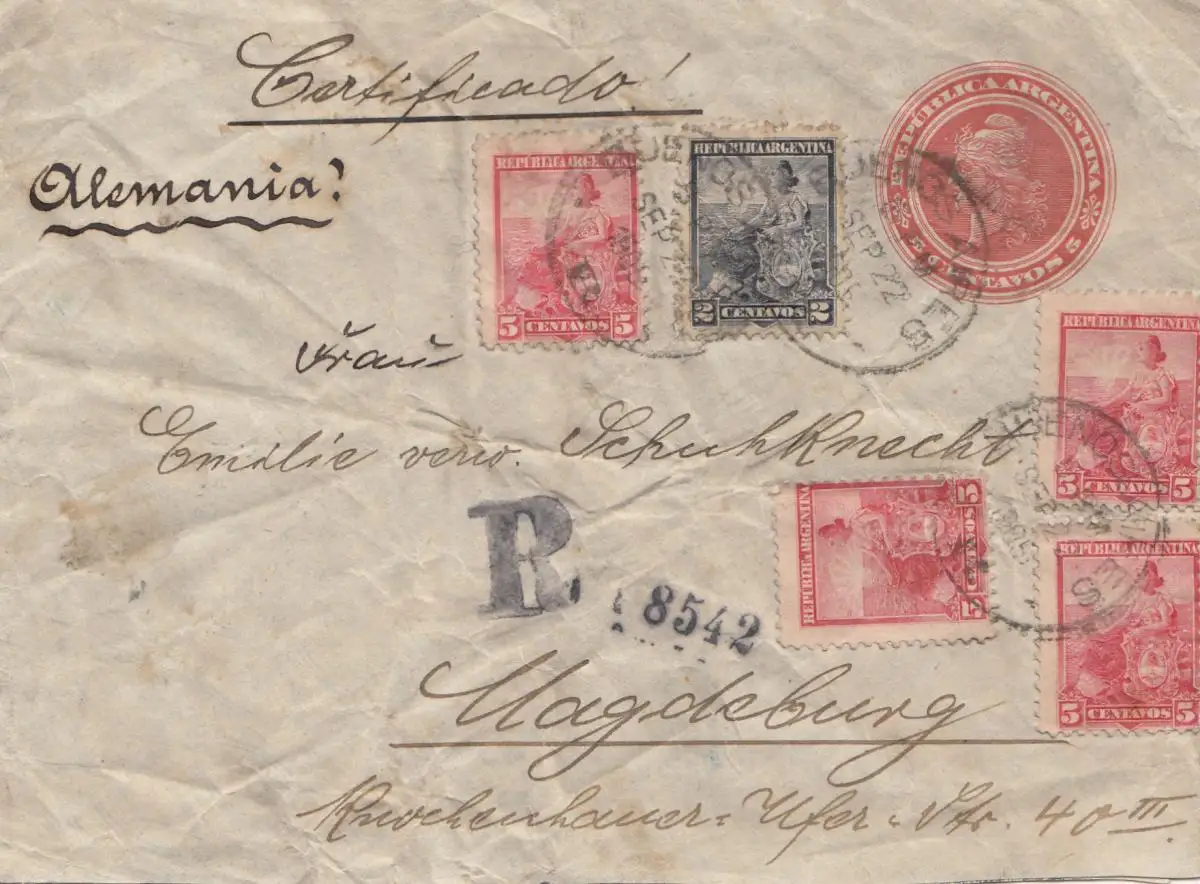 Certificado!
Alemania!
REPUBLICA ARGENTINA
5 CENTAVOS 5
REPUBLICA ARGENTINA
5 CENTAVOS 5
REPUBLICA ARGENTINA
2 CENTAVOS 2
BUENOS AIRES
SEP 22
Frau
Emilie verw. Schuhknecht
REPUBLICA ARGENTINA
5 CENTAVOS 5
REPUBLICA ARGENTINA
5 CENTAVOS 5
BUENOS AIRES
R
8542
REPUBLICA ARGENTINA
5 CENTAVOS 5
Magdeburg
Knochenhauer-Ufer-Str. 40 III